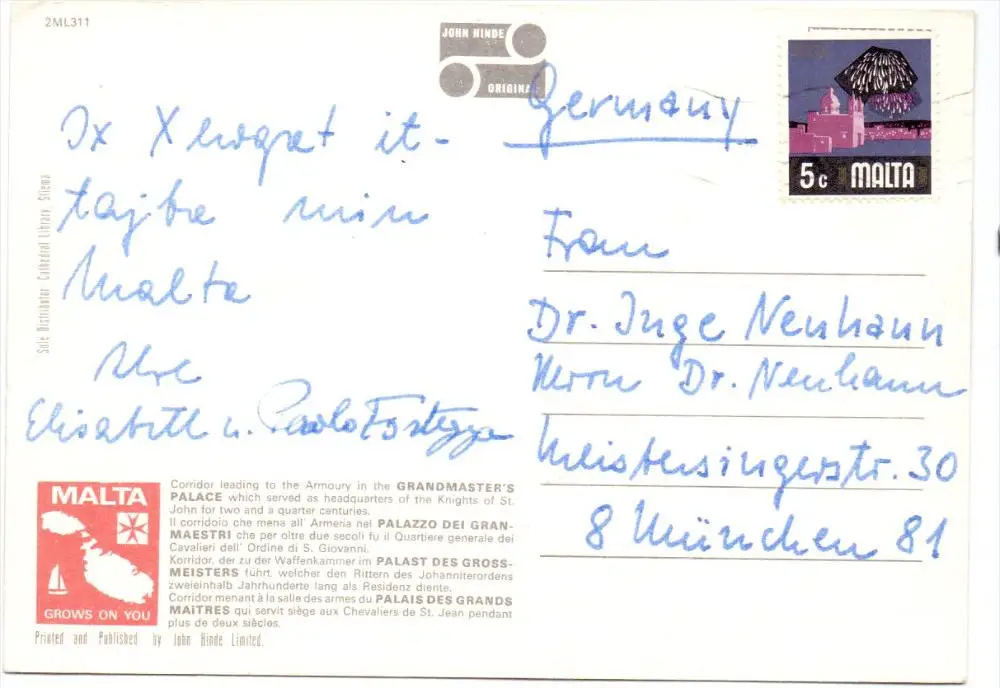 2ML311
JOHN HINDE
ORIGINAL
5c MALTA
Ix Xewqat it-
tajba min
Malta
Ihre
Elisabeth u. Paolo
Germany
Frau
Dr. Inge Neuhann
Herrn Dr. Neuhann
Meistersingerstr. 30
8 München 81
Sole Distributor Cathedral Library, Sliema
MALTA
GROWS ON YOU
Corridor leading to the Armoury in the GRANDMASTER'S
PALACE which served as headquarters of the Knights of St.
John for two and a quarter centuries.
Il corridoio che mena all' Armeria nel PALAZZO DEI GRAN-
MAESTRI che per oltre due secoli fu il Quartiere generale dei
Cavalieri dell' Ordine di S. Giovanni.
Korridor, der zu der Waffenkammer im PALAST DES GROSS-
MEISTERS führt, welcher den Rittern des Johanniterordens
zweieinhalb Jahrhunderte lang als Residenz diente.
Corridor menant à la salle des armes du PALAIS DES GRANDS
MAÎTRES qui servit siège aux Chevaliers de St. Jean pendant
plus de deux siècles.
Printed and Published by John Hinde Limited.